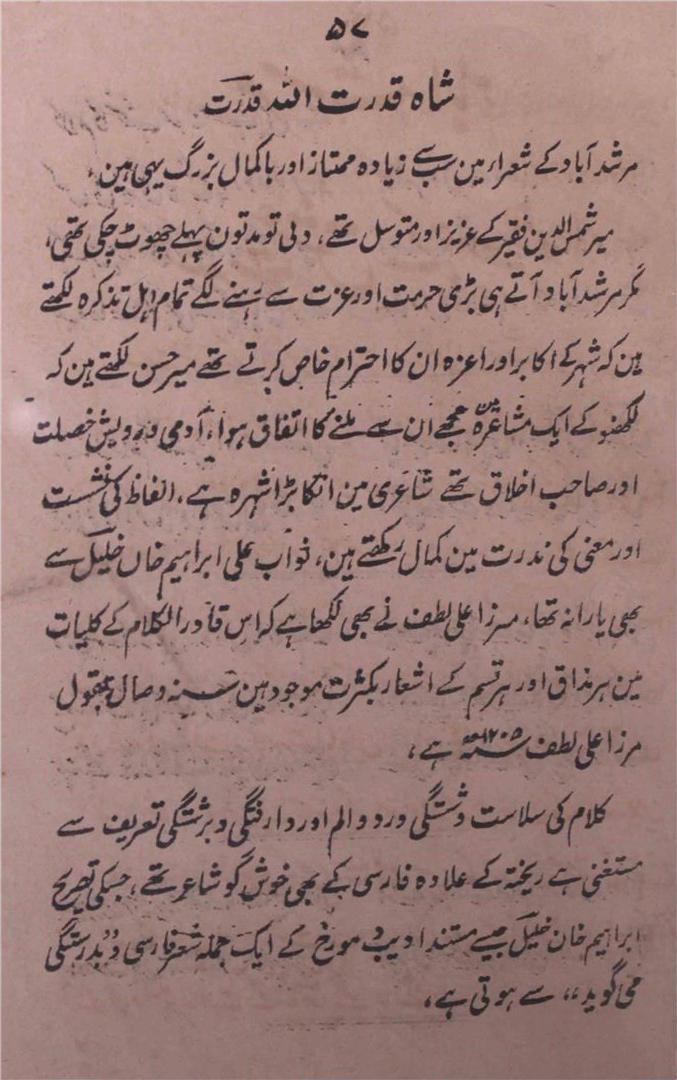 ۵۷
شاہ قدرت اللہ قدرت
مرشد آباد کے شعرار مین سب سے زیادہ ممتاز اور باکمال بزرگ یہی ہین،
میر شمس الدین فقیر کے عزیز اور متوسل تھے، دلی تو مدتون پہلے چھوٹ چکی تھی،
مگر مرشد آباد آتے ہی بڑی حرمت اور عزت سے رہنے لگے تمام اہل تذکرہ لکھتے
ہین کہ شہر کے اکابر اور اعزہ ان کا احترام خاص کرتے تھے میر حسن لکھتے ہین کہ
لکھنؤ کے ایک مشاعرہ مین مجھے ان سے ملنے کا اتفاق ہوا، آدمی درویش خصلت
اور صاحب اخلاق تھے شاعری مین انکا بڑا شہرہ ہے، الفاظ کی نشست
اور معنی کی ندرت مین کمال رکھتے ہین، نواب علی ابراہیم خاں خلیل سے
بھی یارانہ تھا، مرزا علی لطف نے بھی لکھا ہے کہ اس قادر الکلام کے کلیات
مین ہر مذاق اور ہر قسم کے اشعار بکثرت موجود ہین سنہ وصال بقول
مرزا علی لطف ۱۲۰۵ھ ہے،
کلام کی سلاست و شستگی درد و الم اور وارفتگی و برشتگی تعریف سے
مستغنی ہے ریختہ کے علاوہ فارسی کے بھی خوش گو شاعر تھے، جسکی تصریح
ابراہیم خان خلیل جیسے مستند ادیب و مورخ کے ایک جملہ شعر فارسی و بدرستگی
می گوید،، سے ہوتی ہے،